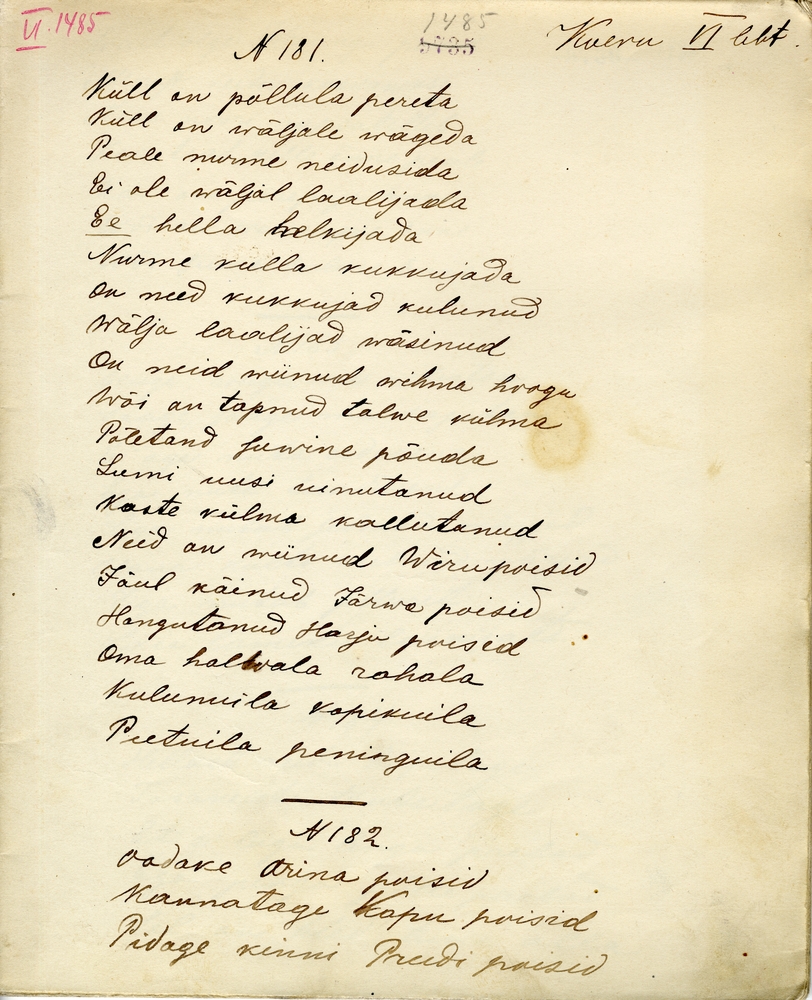 VI. 1485
1485
5735
Koeru VI leht.
N 181.
Küll on põllula pereta
Küll on wäljale wägeda
Peale nurme neidusida
Ei ole wäljal laalijada
Ee hella helkijada
Nurme kulla kukkujada
On need kukkujad kulunud
Wälja laalijad wäsinud
On neid wiinud wihma hoogu
Wõi on tapnud talwe külma
Põletand suwine põuda
Lumi uusi uinutanud
Kaste külma kallutanud
Neid on wiinud Wirupoisid
Jäul käinud Järwa poisid
Hangutanud Harju poisid
Oma halwala rahala
Kulunuila kopikuila
Pettuila peninguila
N 182.
Oodake Arina poisid
Kannatage Kapu poisid
Pidage kinni Preedi poisid